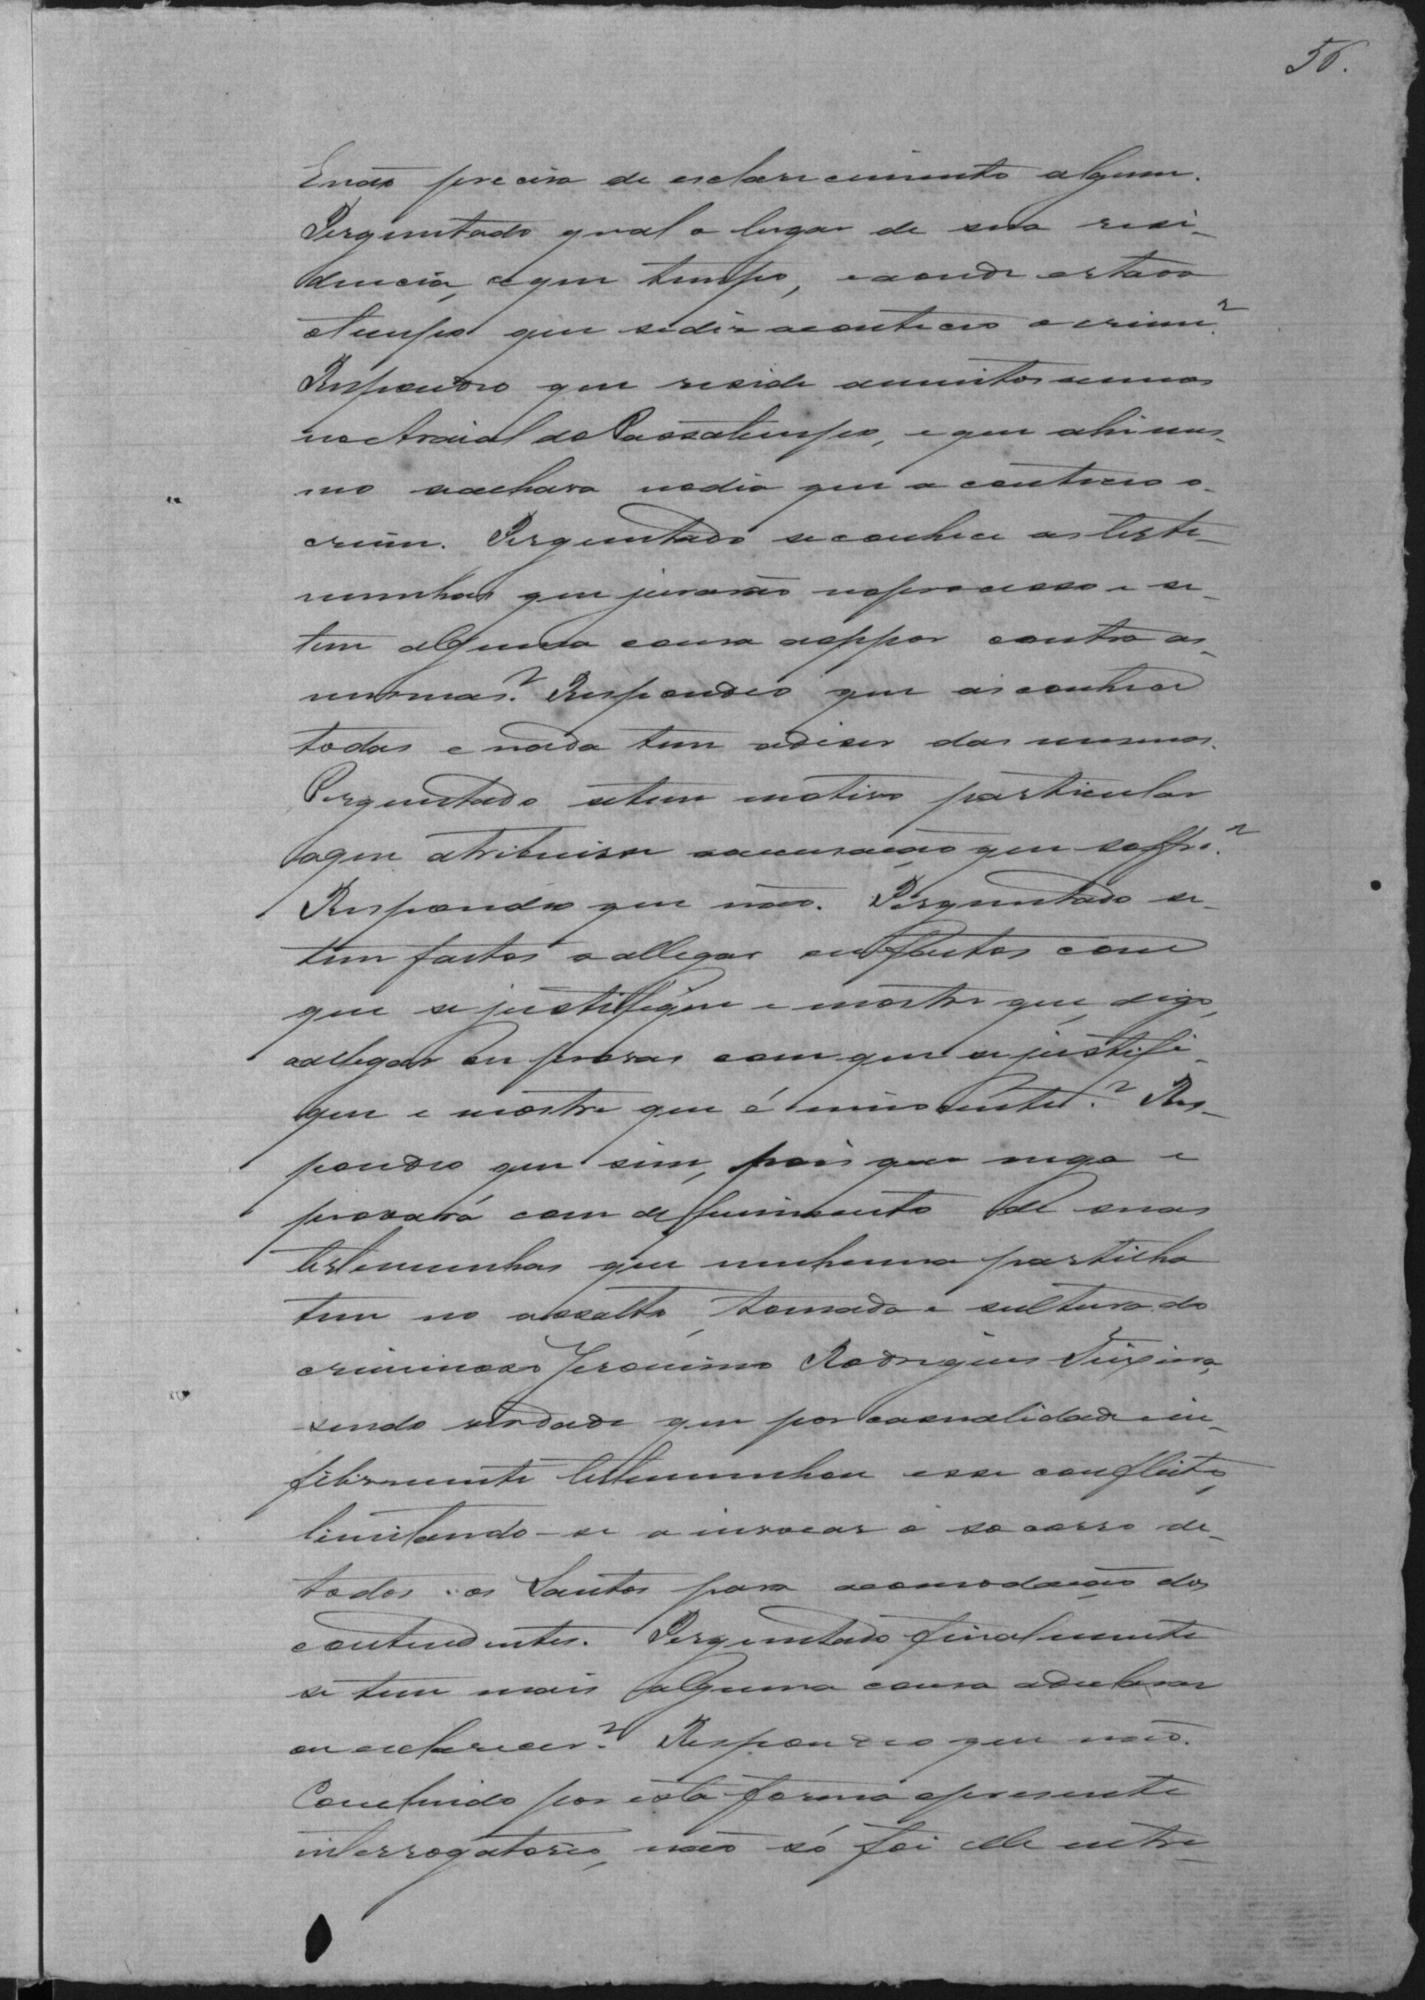 56.
Enão precisa de esclarecimento algum.
Perguntado qual o lugar de sua resi-
dencia, a que tempo, e aonde estava
o tempo que se diz aconteceo o crime?
Respondeo que reside a muitos annos
no Arraial do Passatempo, e que ahi mes-
mo se achava no dia que aconteceo o
crime. Perguntado se conhece as teste-
munhas que jurarão no processo e se
tem alguma cousa a oppor contra as
mesmas? Respondeo que as conhece
todas e nada tem a diser das mesmas.
Perguntado se tem motivo particular
a que atribuisse a accusação que soffre?
Respondeo que não. Perguntado se
tem factos a allegar ou factos com
que se justifique e mostre que, digo,
a allegar ou provas com que se justifi-
que e mostre que é innocente? Res-
pondeo que sim, pois que nega e
provará com depuimento de suas
testemunhas que nenhuma partilha
tem no assalto, tomada e soltura do
criminoso Jeronimo Rodrigues Teixeira,
sendo verdade que por casualidade in-
felizmente testemunhou esse conflicto,
limitando-se a invocar o socorro de
todos os Santos para acomodação dos
contendentes. Perguntado finalmente
se tem mais alguma cousa a declarar
ou esclarecer? Respondeo que não.
Concluido por esta forma o presente
interrogatorio, não só foi elle entre-